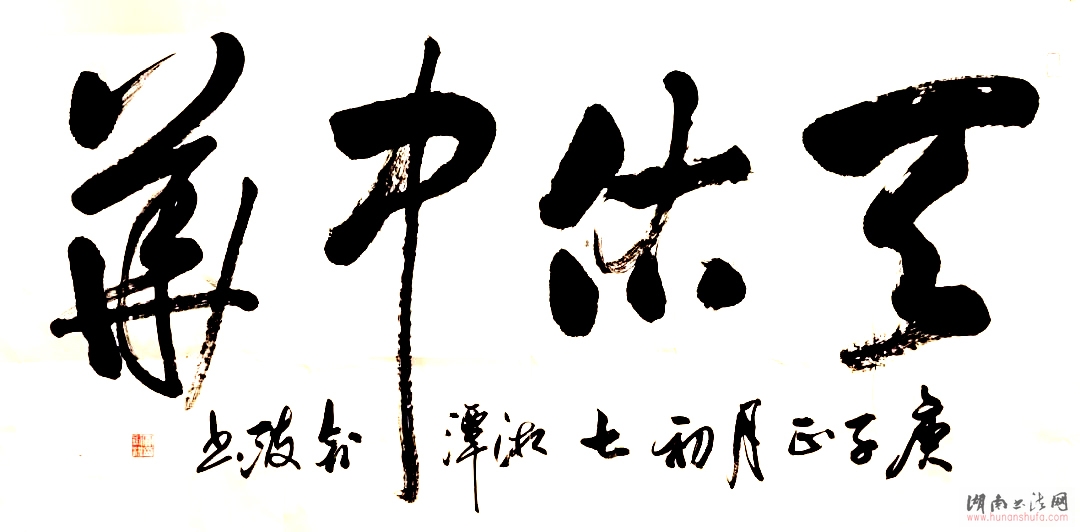 天佑中華
庚子正月初七湘潭书
湖南书法网
www.hunanshufa.com